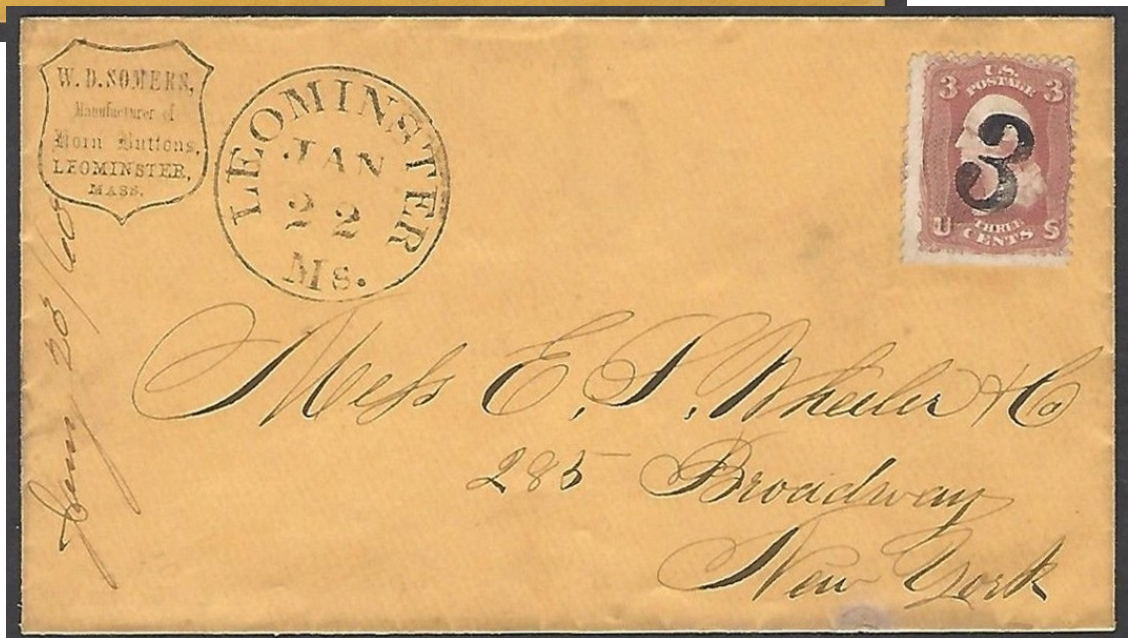 W. D. SOMERS,
Manufacturer of
Horn Buttons,
LEOMINSTER,
MASS.
LEOMINSTER
JAN
22
Ms.
3 U.S. 3
POSTAGE
3
THREE
U CENTS S
Mess E. S. Wheeler & Co
285 Broadway
New York